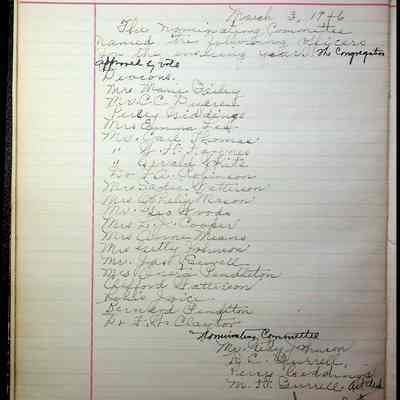 March 3, 1946
The Nominating Committee
named the following officers
for the ensuing year. The Congregation
approved by vote
Deacons.
Mrs Marie
Mr. C.C.
Percy Giddings
Mrs Emma Lee
Mr. Carl Thomas
" J. H. Haynes
" Gerald White
Dr. F.A. Robinson
Mrs Sadie Patterson
Mrs Mason
Mr. Geo Woods
Mrs L. J. Cooper
Mrs Anne Means
Mrs Betty Johnson
Mr. Jas Powell
Mrs Pendleton
Clifford Patterson
Louis Joice
Bernard Pendleton
Dr F. H. Clayton
Nominating Committee
Mr. Geo Johnson
C. Burrell
Percy Giddings
M. H. Burrell